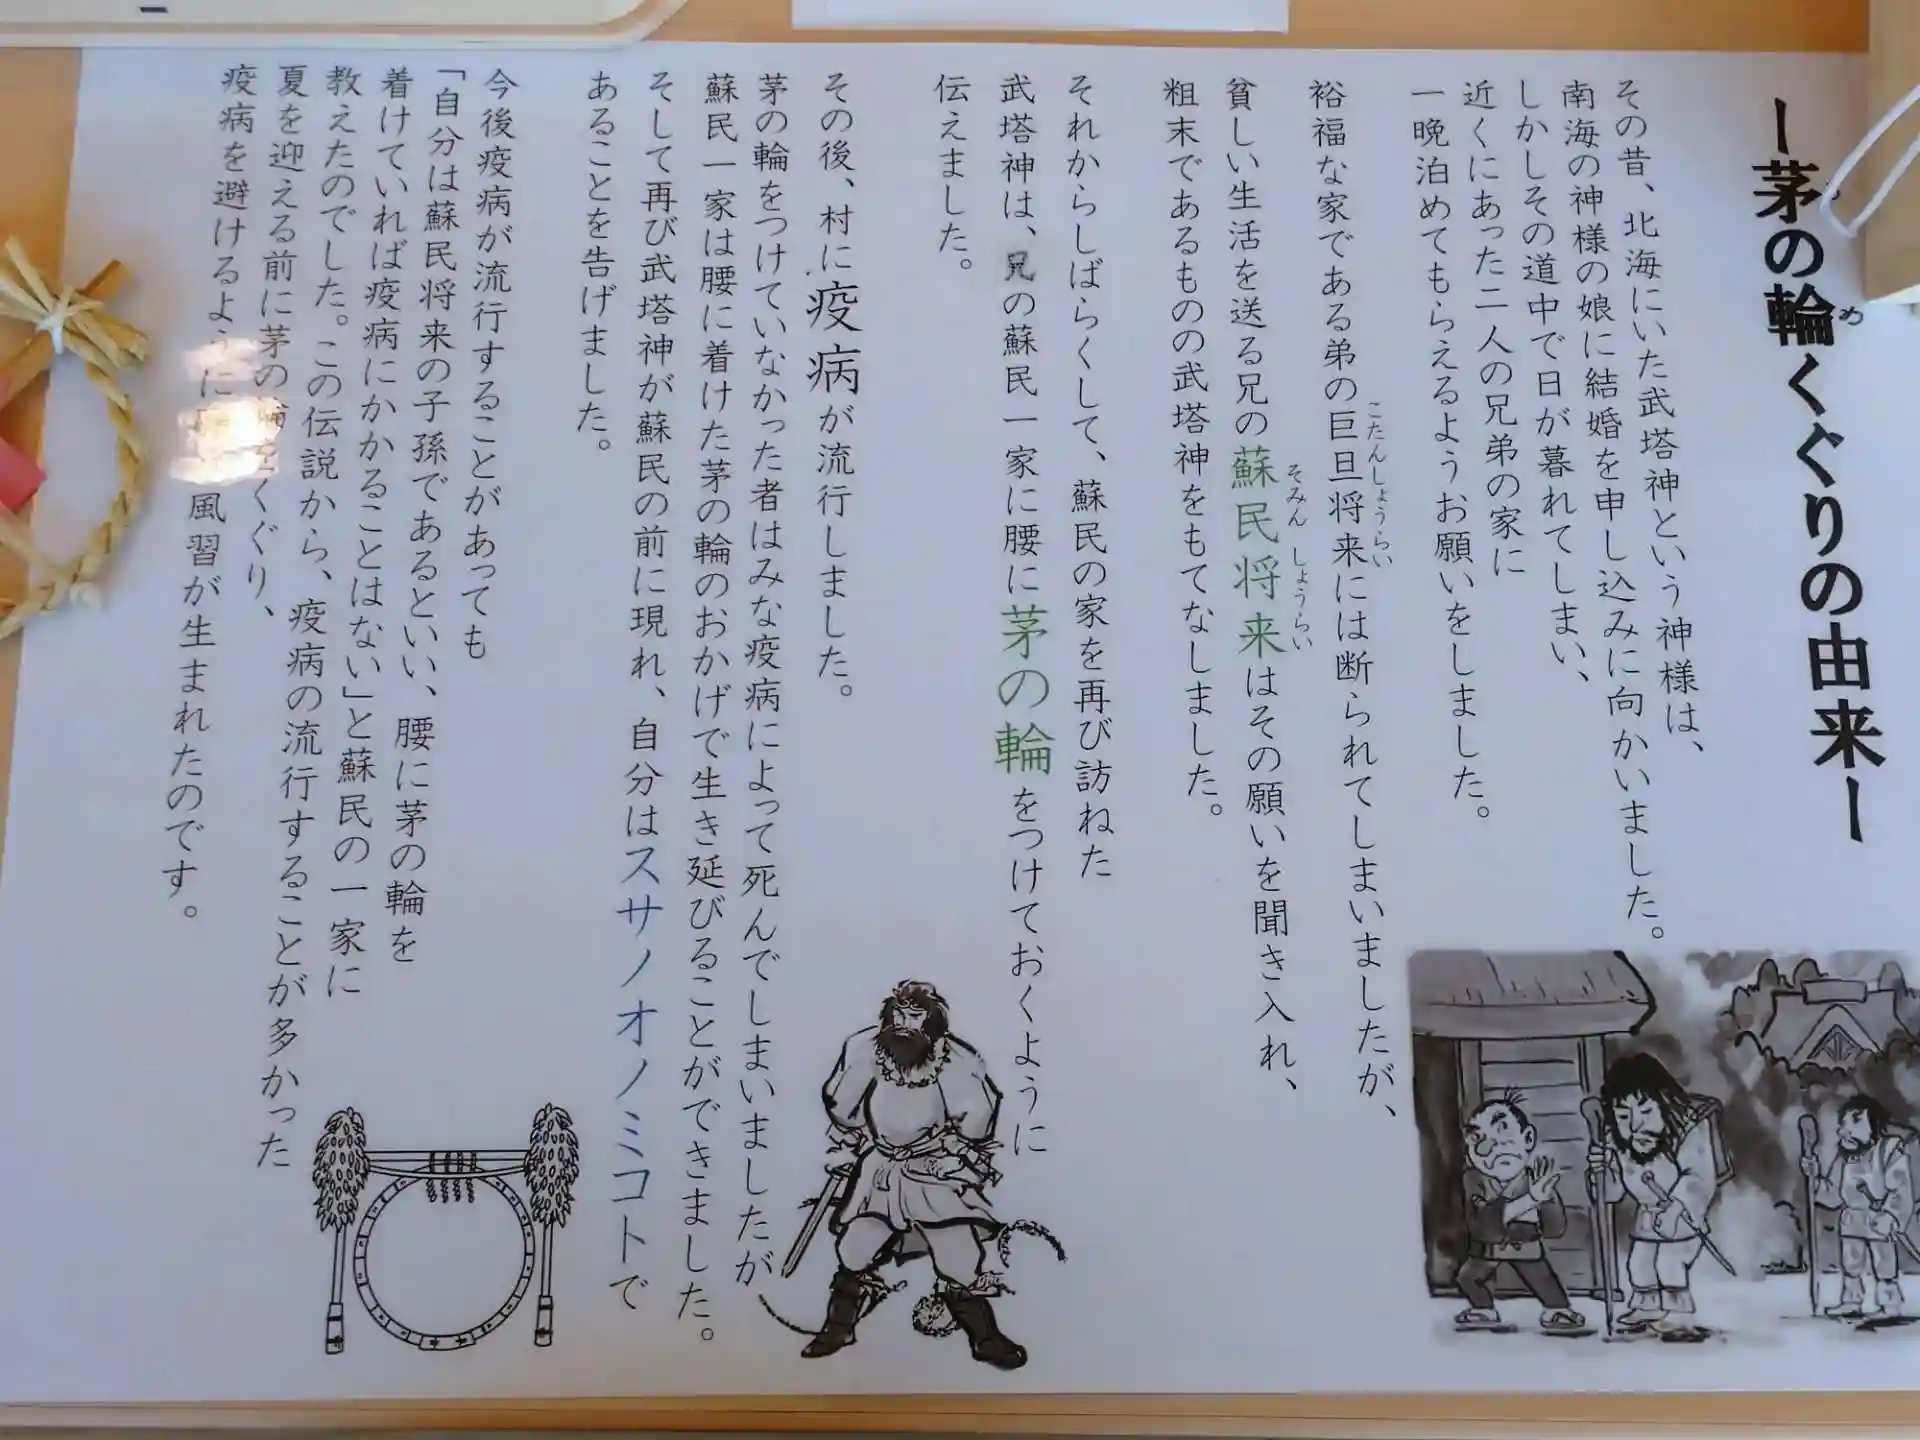 ー茅の輪くぐりの由来ー
その昔、北海にいた武塔神という神様は、
南海の神様の娘に結婚を申し込みに向かいました。
しかしその道中で日が暮れてしまい、
近くにあった二人の兄弟の家に
一晩泊めてもらえるようお願いをしました。
裕福な家である弟の巨旦将来には断られてしまいましたが、
こたんしょうらい
貧しい生活を送る兄の蘇民将来はその願いを聞き入れ、
そみんしょうらい
粗末であるものの武塔神をもてなしました。
それからしばらくして、蘇民の家を再び訪ねた
武塔神は、兄の蘇民一家に腰に茅の輪をつけておくように
伝えました。
その後、村に疫病が流行しました。
茅の輪をつけていなかった者はみな疫病によって死んでしまいましたが
蘇民一家は腰に着けた茅の輪のおかげで生き延びることができました。
そして再び武塔神が蘇民の前に現れ、自分はスサノオノミコトで
あることを告げました。
今後疫病が流行することがあっても
「自分は蘇民将来の子孫であるといい、腰に茅の輪を
着けていれば疫病にかかることはない」と蘇民の一家に
教えたのでした。この伝説から、疫病の流行することが多かった
夏を迎える前に茅の輪をくぐり、
疫病を避けるように 風習が生まれたのです。